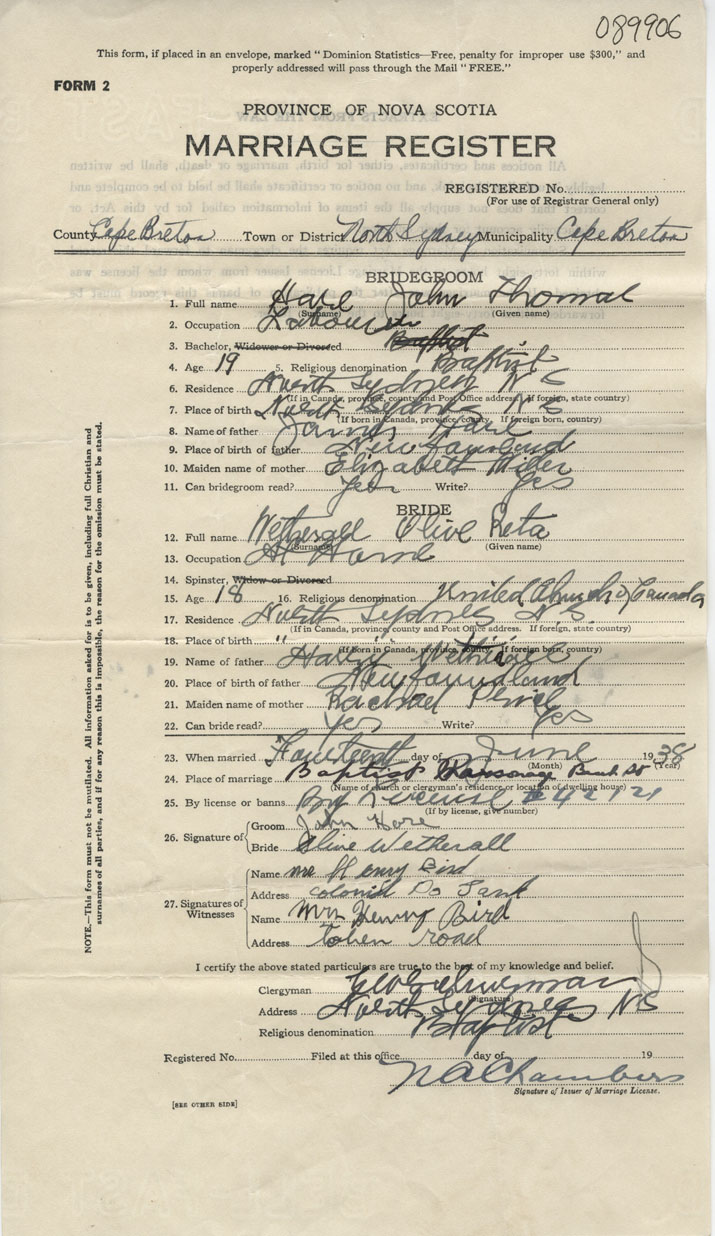 089906
This form, if placed in an envelope, marked "Dominion Statistics—Free, penalty for improper use $300," and
properly addressed will pass through the Mail "FREE."
FORM 2
PROVINCE OF NOVA SCOTIA
MARRIAGE REGISTER
REGISTERED No.
(For use of Registrar General only)
County Cape Breton Town or District North Sydney Municipality Cape Breton
BRIDEGROOM
1. Full name Hare John Thomas
(Surname) (Given name)
2. Occupation Labourer
3. Bachelor, Widower or Divorced Baptist
4. Age 19 5. Religious denomination Baptist
6. Residence North Sydney N S
(If in Canada, province, county and Post Office address. If foreign, state country)
7. Place of birth North Sydney N S
(If born in Canada, province, county. If foreign born, country)
8. Name of father James Hare
9. Place of birth of father Newfoundland
10. Maiden name of mother Elizabeth
11. Can bridegroom read? Yes Write? Yes
BRIDE
12. Full name Wetherall Olive Reta
(Surname) (Given name)
13. Occupation At Home
14. Spinster, Widow or Divorced
15. Age 18 16. Religious denomination United Church of Canada
17. Residence North Sydney N.S.
(If in Canada, province, county and Post Office address. If foreign, state country)
18. Place of birth " " "
(If born in Canada, province, county. If foreign born, country)
19. Name of father
20. Place of birth of father Newfoundland
21. Maiden name of mother Rachael
22. Can bride read? Yes Write? Yes
23. When married Fourteenth day of June 1938
(Month) (Year)
24. Place of marriage Baptist Parsonage
(Name of church or clergyman's residence or location of dwelling house)
25. By license or banns By License # 42121
(If by license, give number)
26. Signature of Groom John Hare
Bride Olive Wetherall
27. Signatures of Witnesses Name Mr Henry Bird
Address colonial
Name Mrs Henry Bird
Address road
I certify the above stated particulars are true to the best of my knowledge and belief.
Clergyman
(Signature)
Address North Sydney NS
Religious denomination Baptist
Registered No. Filed at this office day of 19
N A Chambers
Signature of Issuer of Marriage License.
[SEE OTHER SIDE]
NOTE.—This form must not be mutilated. All information asked for is to be given, including full Christian and
surnames of all parties, and if for any reason this is impossible, the reason for the omission must be stated.